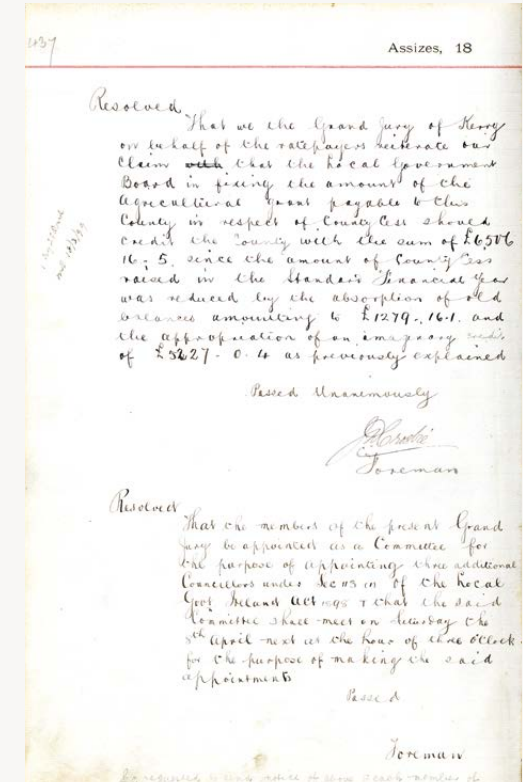 437
Assizes, 18
Resolved
That we the Grand Jury of Kerry
on behalf of the ratepayers reiterate our
Claim with that the Local Government
Board in fixing the amount of the
Agricultural Grant payable to this
County in respect of County Cess should
credit the County with the sum of £6506
16; 5, since the amount of County Cess
raised in the Standard Financial Year
was reduced by the absorption of old
balances amounting to £1279.. 16.1. and
the appropriation of an imaginary credit
of £5227 - 0. 4 as previously explained
Passed Unanimously
Crosbie
Foreman
Resolved
That the members of the present Grand
Jury be appointed as a Committee for
the purpose of appointing three additional
Councillors under Sec 113 of the Local
Govt Ireland Act 1898 & that the said
Committee shall meet on Saturday the
8th April next at the hour of three o'Clock
for the purpose of making the said
appointments
Passed
Foreman
be requested to send notice to each member of